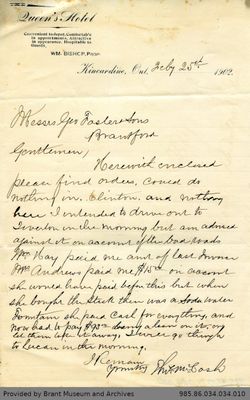 THE
Queen's Hotel
Convenient to depot, Comfortable
in appointments, Attractive
in appearance, Hospitable to
Guests.
WM. BISHOP, PROP.
Kincardine, Ont. Feby 25th 1902.
Messrs Geo Foster & Sons
Brantford
Gentlemen
Herewith enclosed
please find orders, could do
nothing in Clinton and nothing
here I intended to drive out to
in the morning but am advised
against it on account of the bad roads
Mr Hay paid me amt of last invoice
Andrews paid me $15 on account
she would have paid before this but when
she bought the stock there was a soda water
Fountain she paid Cash for everything, and
now had to pay $ being a lien on it, or
let them take it away, I go
to Lucan in the morning.
I Remain
Yours truly
McCosh
Provided by Brant Museum and Archives
985.86.034.034.010